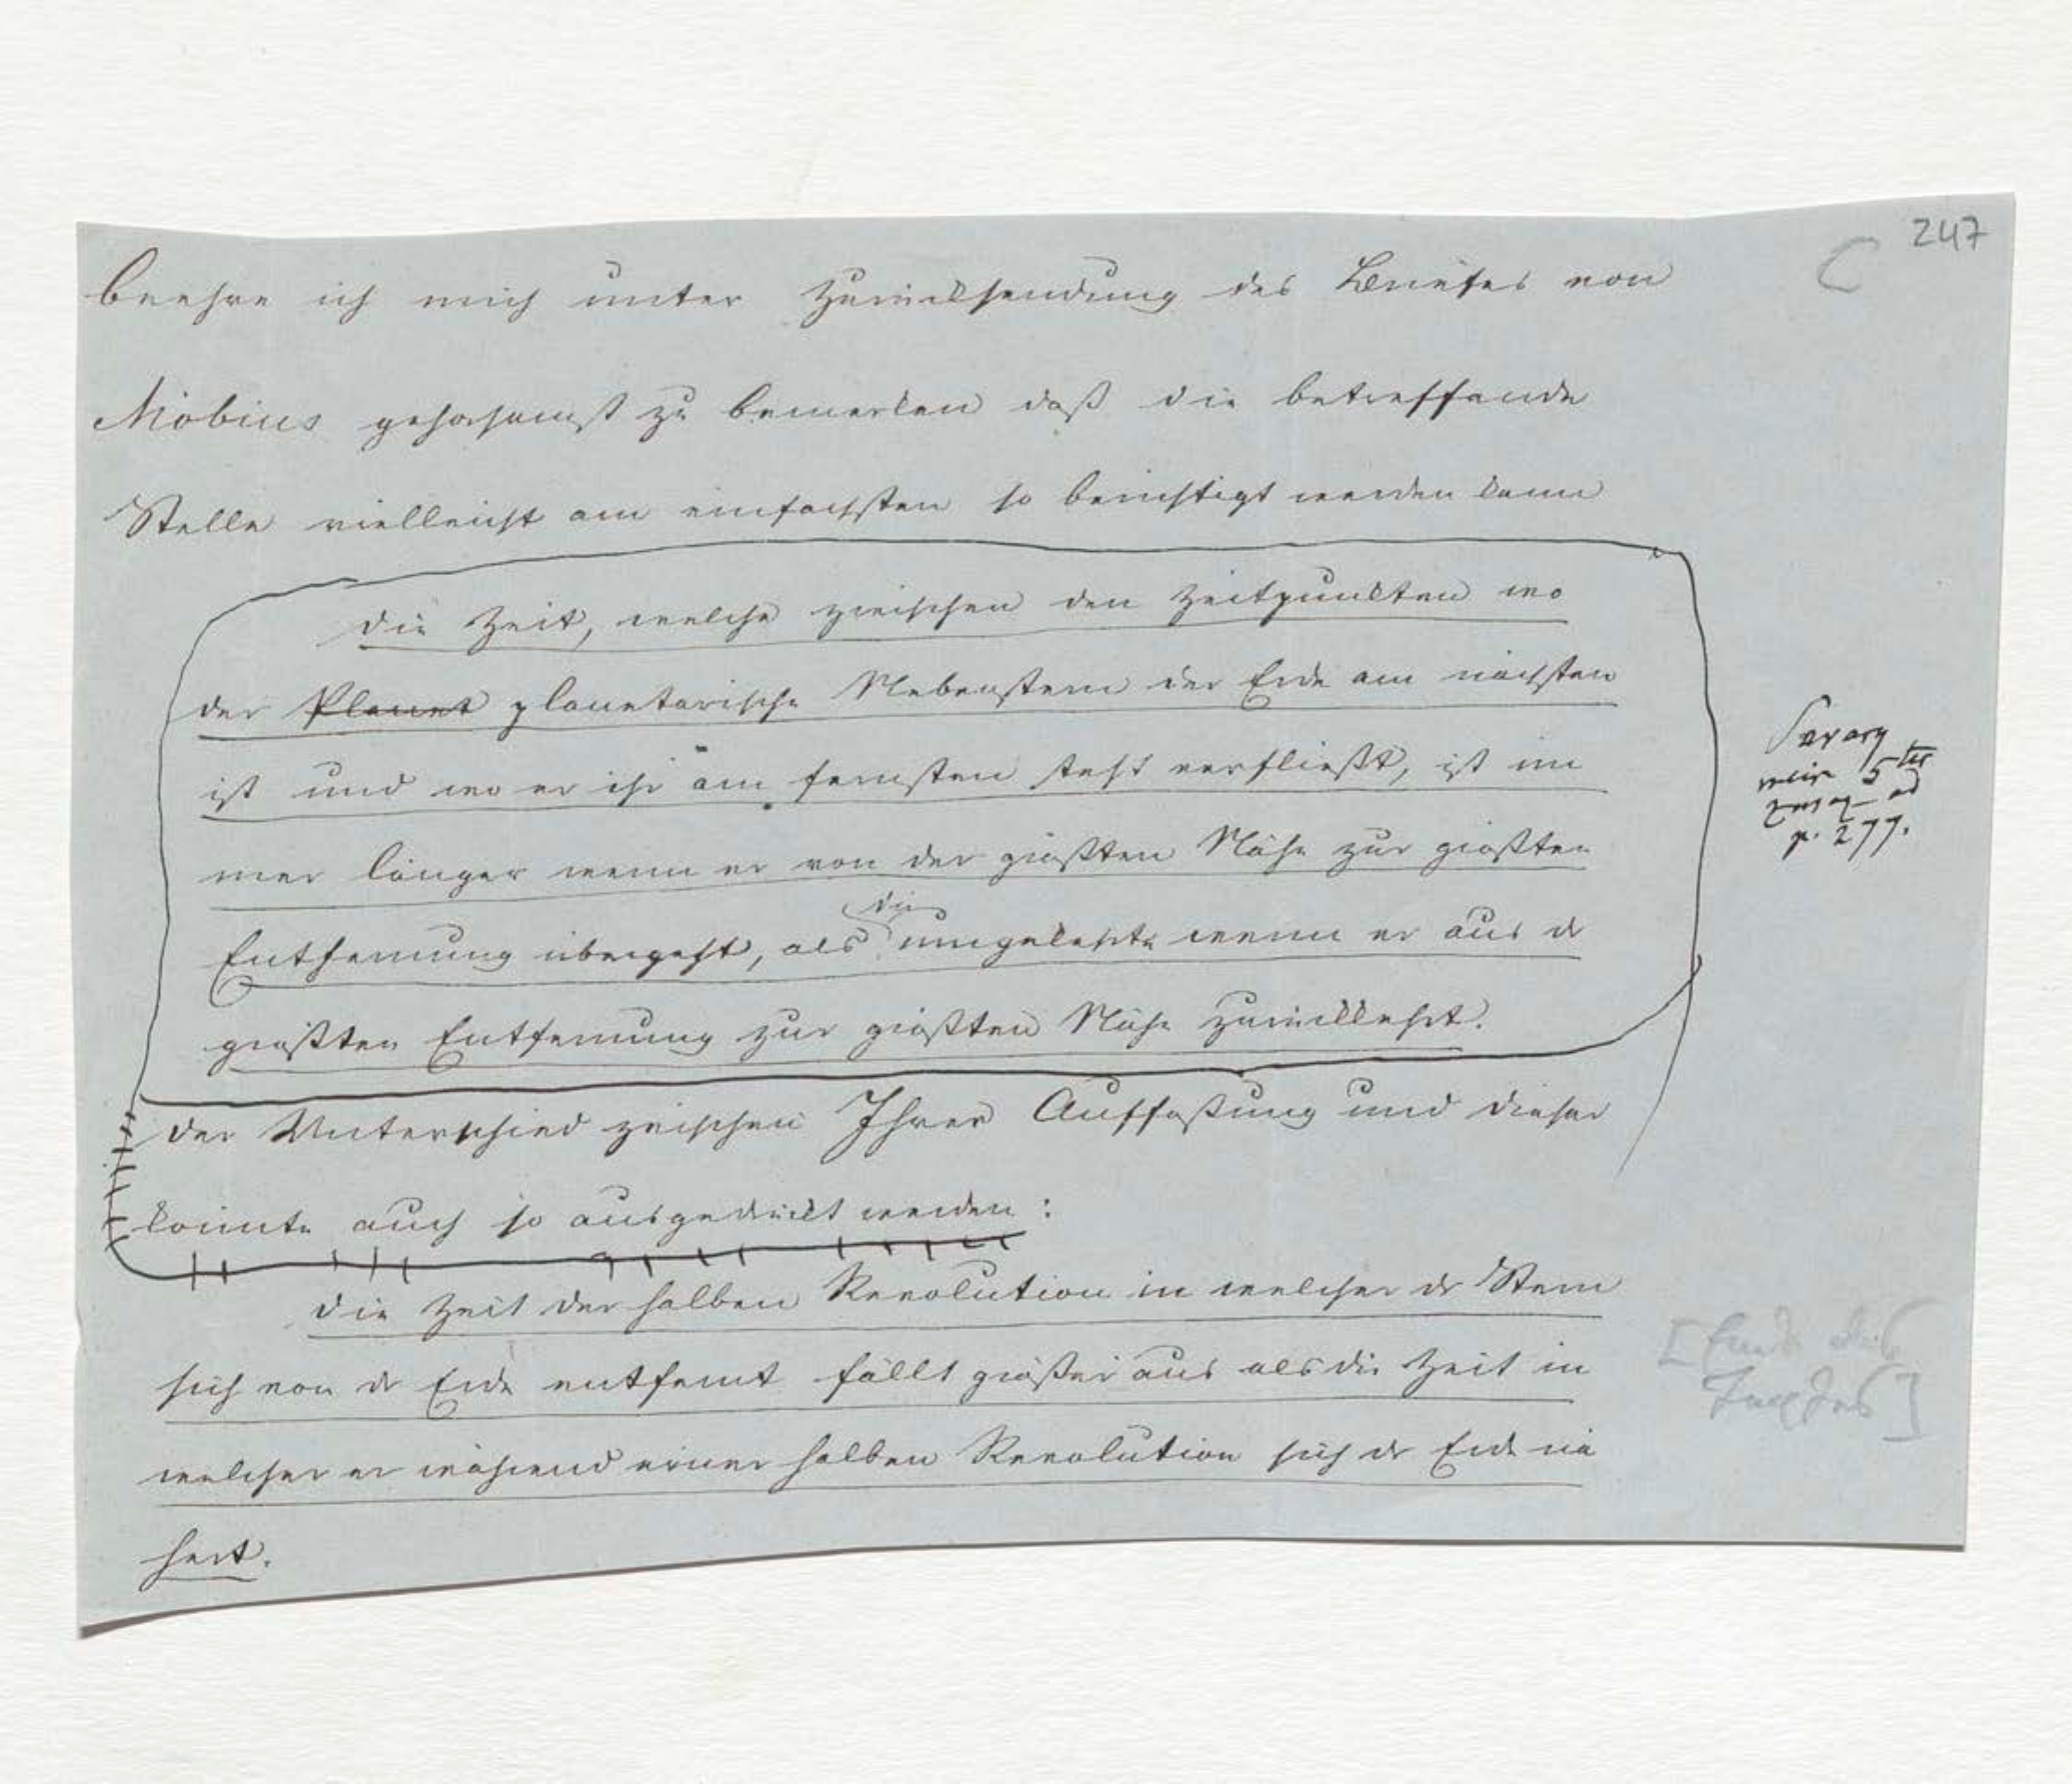 247
C
beehre ich mich unter Zurücksendung des Briefes von
Möbius gehorsamst zu bemerken daß die betreffende
Stelle vielleicht am einfachsten so berichtigt werden kann
Die Zeit, welche zwischen den Zeitpunkten wo
der Planet planetarische Nebenstern der Erde am nächsten
ist und wo er ihr am fernsten steht verfließt, ist im
mer länger wenn er von der größten Nähe zur größten
die
Entfernung übergeht, als umgekehrte wenn er aus der
größten Entfernung zur größten Nähe zurückkehrt.
Der Unterschied zwischen Ihrer Auffaßung und dieser
könnte auch so ausgedrückt werden:
Die Zeit der halben Revolution in welcher der Stern
sich von der Erde entfernt fällt größer aus als die Zeit in
welcher er während einer halben Revolution sich der Erde nä
hert.
Savary
mein 5ter
Zusaz ad
p. 277.
[Ende des
Textes]